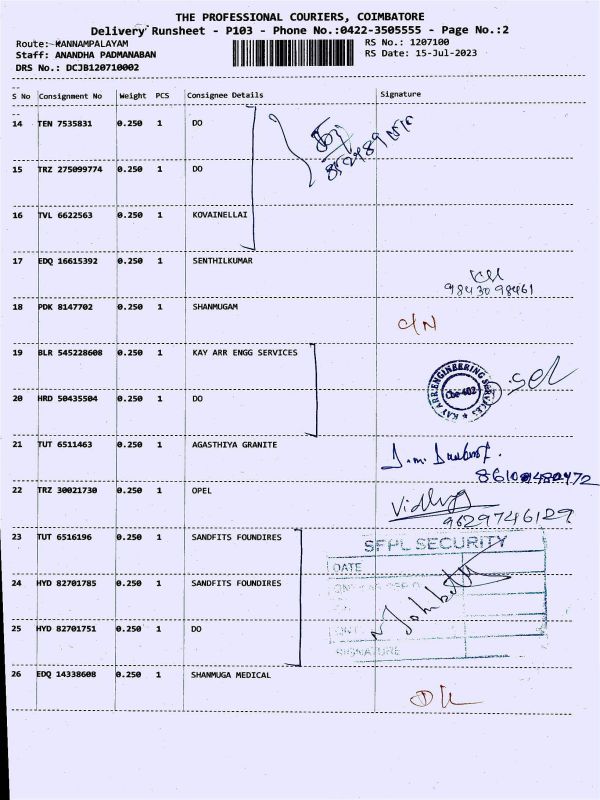 THE PROFESSIONAL COURIERS, COIMBATORE
Delivery Runsheet - P103 - Phone No.:0422-3505555 - Page No.:2
Route: KANNAMPALAYAM
RS No.: 1207100
Staff: ANANDHA PADMANABAN
RS Date: 15-Jul-2023
DRS No.: DCJB120710002
S No Consignment No Weight PCS Consignee Details Signature
14 TEN 7535831 0.250 1 DO
15 TRZ 275099774 0.250 1 DO
16 TVL 6622563 0.250 1 KOVAINELLAI
17 EDQ 16615392 0.250 1 SENTHILKUMAR
98430 98461
18 PDK 8147702 0.250 1 SHANMUGAM
C/N
19 BLR 545228608 0.250 1 KAY ARR ENGG SERVICES
KAY ARR ENGINEERING SERVICES
Cbe-402
20 HRD 50435504 0.250 1 DO
21 TUT 6511463 0.250 1 AGASTHIYA GRANITE
22 TRZ 30021730 0.250 1 OPEL
Vidhya
9629746129
23 TUT 6516196 0.250 1 SANDFITS FOUNDIRES
SFPL SECURITY
DATE
24 HYD 82701785 0.250 1 SANDFITS FOUNDIRES
25 HYD 82701751 0.250 1 DO
SIGNATURE
26 EDQ 14338608 0.250 1 SHANMUGA MEDICAL